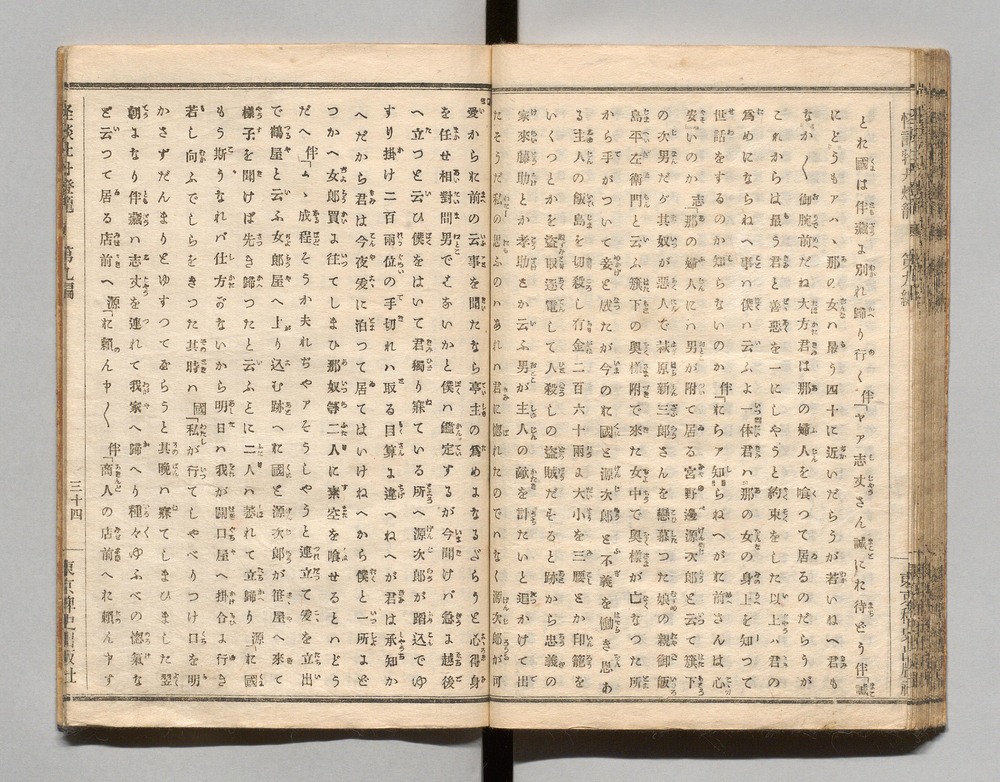 とお國は伴藏よ別れ歸り行く 伴「ヤァ志丈さん誠にお待どう 伴「誠
にどうもアハヽ那の女ハ最う四十に近いだらうが若いねへ君も
なか〱御腕前だね大方君は那の婦人を喰つて居るのだらうが
これからは最う君と善惡を一にしやうと約束をした以上ハ君の
爲めにならねへ事ハ僕ハ云ふよ一体君ハ那の女の身上を知つて
世話をするのか知らないのか 伴「おらァ知らねへがお前さんは心
安いのか 志「那の婦人にハ男が附て居る宮野邊源次郎と云て籏下
の次男だゞ其奴が惡人で萩原新三郎さんを戀慕つた娘の親御飯
島平左衛門と云ふ籏下の奥樣附で來た女中で奥樣が亡なつた所
から手がついて妾と成たが今のお國と源次郎と不義を働き恩あ
る主人の飯島を切殺し有金二百六十兩よ大小を三腰とか印籠を
いくつとかを盜取逐電して人殺しの盜賊だそると跡から忠義の
家來藤助とか孝助とか云ふ男が主人の敵を討たいと追かけて出
たそうだ私の思ふのハあれハ君に惚れたのでハなく源次郎が可
愛からお前の云事を聞たなら亭主の爲めよなるだらうと心得身
を任せ相對間男でハないかと僕ハ鑑定するが今聞けバ急よ越後
へ立つと云ひ僕をはいて君獨り寐ている所へ源次郎が踏込でゆ
すり掛け二百兩位の手切れハ取る目算よ違へねへが君は承知か
へだから君は今夜爰に泊つて居てはいけねへから僕と一所よど
つかへ女郎買よ往てしまひ那奴等二人に素空を喰せるとハどう
だへ 伴「ムヽ成程そうか夫れぢやァそうしやうと連立て爰を立出
で鶴屋と云ふ女郎屋へ上り込む跡へお國と源次郎が笹屋へ來て
樣子を聞けば先き歸つたと云ふとに二人ハ萎れて立歸り 源「お國
もう斯うなれバ仕方がないから明日ハ我が關口屋へ掛合よ行き
若し向ふでしらをきつた其時ハ 國「私が行てしやべりつけ口を明
かさずだんまりとゆすつてやらうと其晩ハ寐てしまひました翌
朝よなり伴藏ハ志丈を連れて我家へ歸へり種々ゆふべの惚氣な
ど云つて居る店前へ 源「お頼ん申〱 伴「商人の店前へお頼ん申す
怪談牡丹燈籠 第九編
三十四
東京稗史出版社